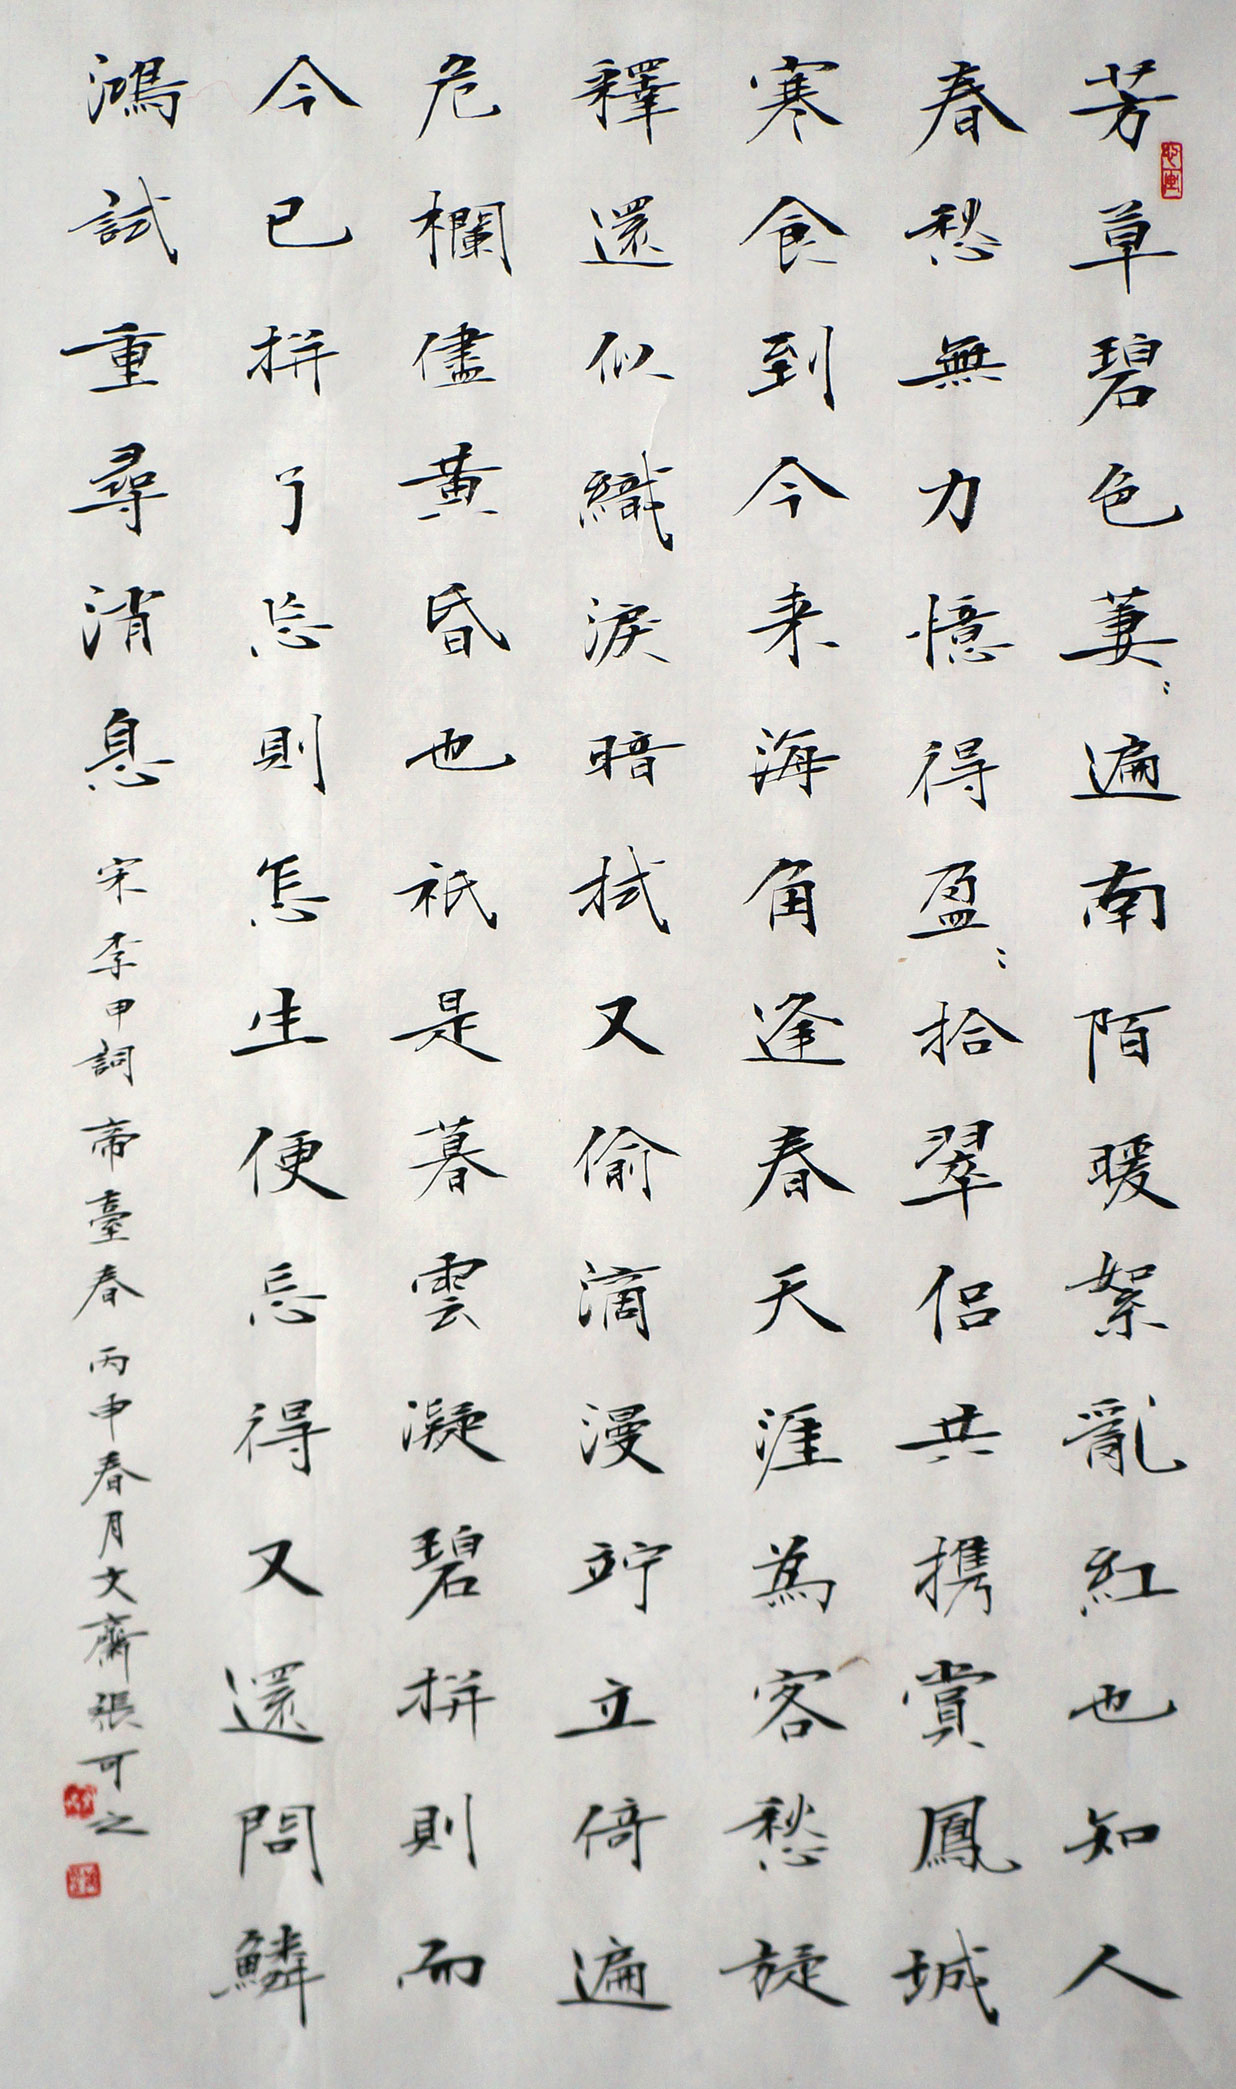 芳草碧色萋〻遍南陌暖絮亂紅也知人
春愁無力憶得盈〻拾翠侣共携賞鳳城
寒食到今来海角逢春天涯為客愁旋
釋還似織淚暗拭又偷滴漫竚立倚遍
危欄儘黃昏也祇是暮雲凝碧拼則而
今已拼了忘則怎生便忘得又還問鱗
鴻試重尋消息 宋李甲詞帝臺春 丙申春月文齋張可之